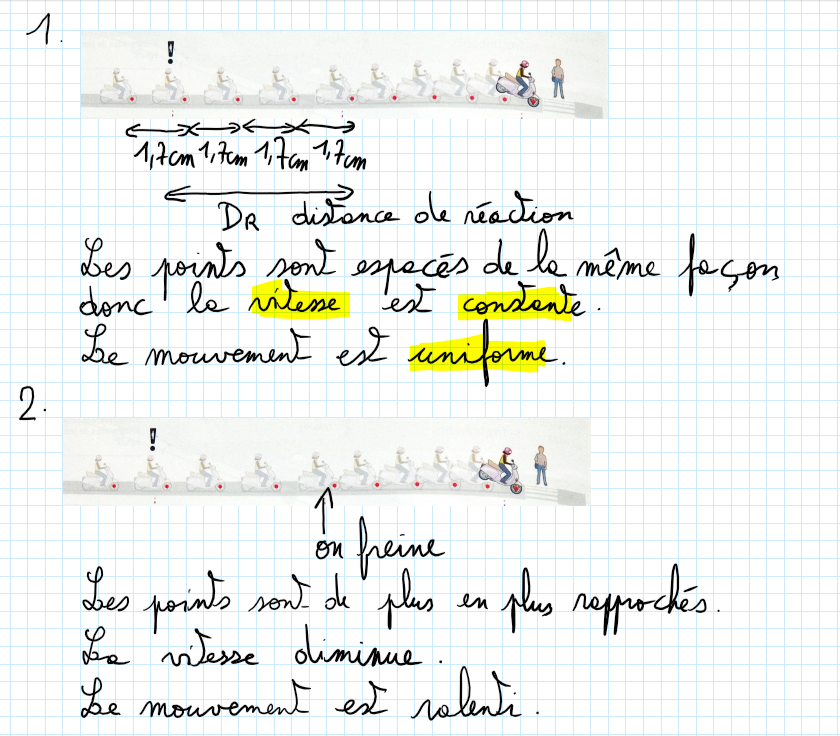 1.
!
1,7cm 1,7cm 1,7cm 1,7cm
DR distance de réaction
Les points sont espacés de la même façon
donc la vitesse est constante.
Le mouvement est uniforme.
2.
!
on freine
Les points sont de plus en plus rapprochés.
La vitesse diminue.
Le mouvement est ralenti.